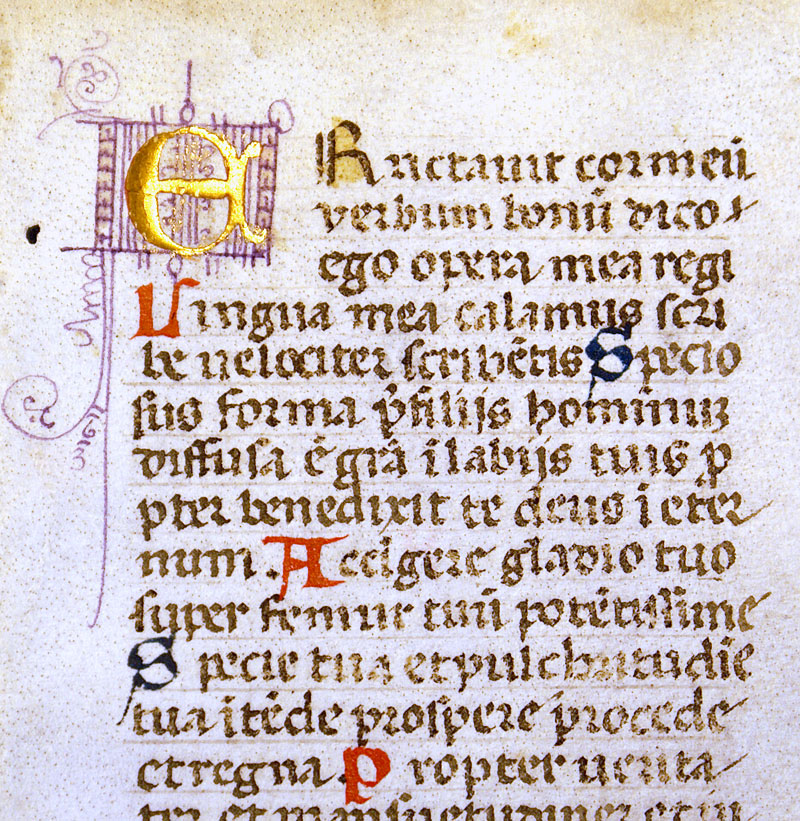 ERuctauit cor meū
verbum bonū dico
ego opera mea regi
Lingua mea calamus scri
be uelociter scribētis Specio
sus forma p̄ filijs hominuꝫ
diffusa ē grā i labijs tuis ꝓ
pter benedixit te deus i eter
num. Accīgere gladio tuo
super femur tuū potētissime
Specie tua et pulchritudīe
tua ītēde prospere procede
et regna. Propter uerita
tem et mansuetudinem et iu